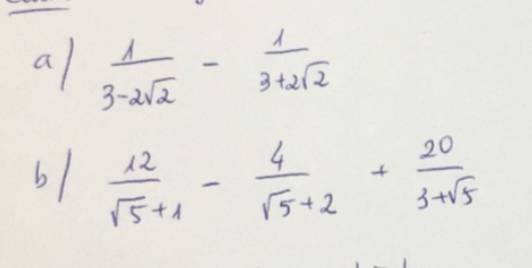 a/ \frac{1}{3-2\sqrt{2}} - \frac{1}{3+2\sqrt{2}}
b/ \frac{12}{\sqrt{5}+1} - \frac{4}{\sqrt{5}+2} + \frac{20}{3+\sqrt{5}}